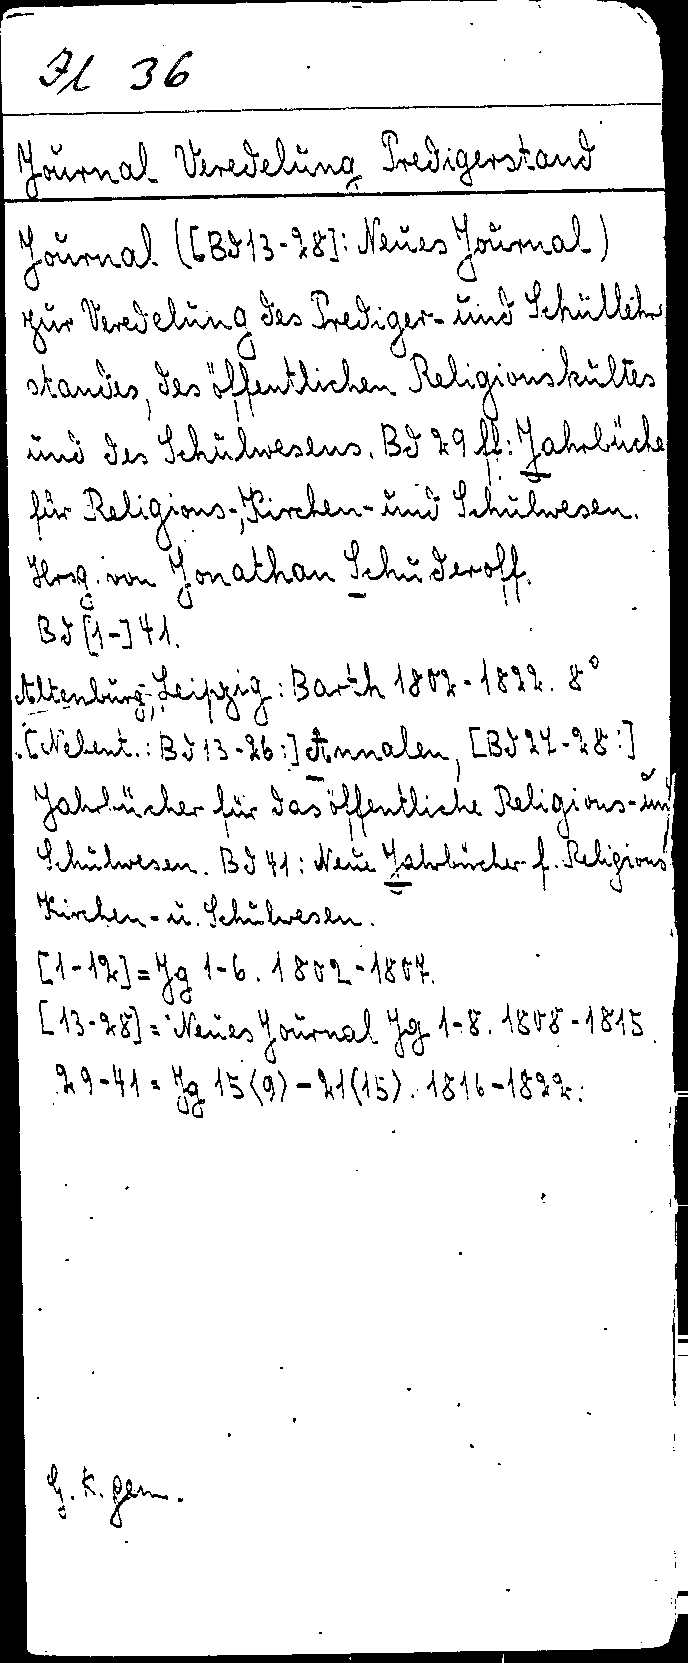 Jl 36
Journal Veredelung Predigerstand
Journal ([Bd 13-28]: Neues Journal)
zur Veredelung des Prediger- und Schullehr
standes, des öffentlichen Religionskultes
und des Schulwesens. Bd 29 ff: Jahrbüche
für Religions-, Kirchen- und Schulwesen.
Hrsg. von Jonathan Schuderoff.
Bd [1-] 41.
Altenburg; Leipzig: Barth 1802-1822. 8°
[Nebent.: Bd 13-26:] Annalen, [Bd 27-28:]
Jahrbücher für das öffentliche Religions- un
Schulwesen. Bd 41: Neue Jahrbücher f. Religions
Kirchen- u. Schulwesen.
[1-12] = Jg 1-6. 1802-1807.
[13-28] = Neues Journal Jg 1-8. 1808-1815.
29-41 = Jg 15(9)-21(15). 1816-1822.
G. K. gem.